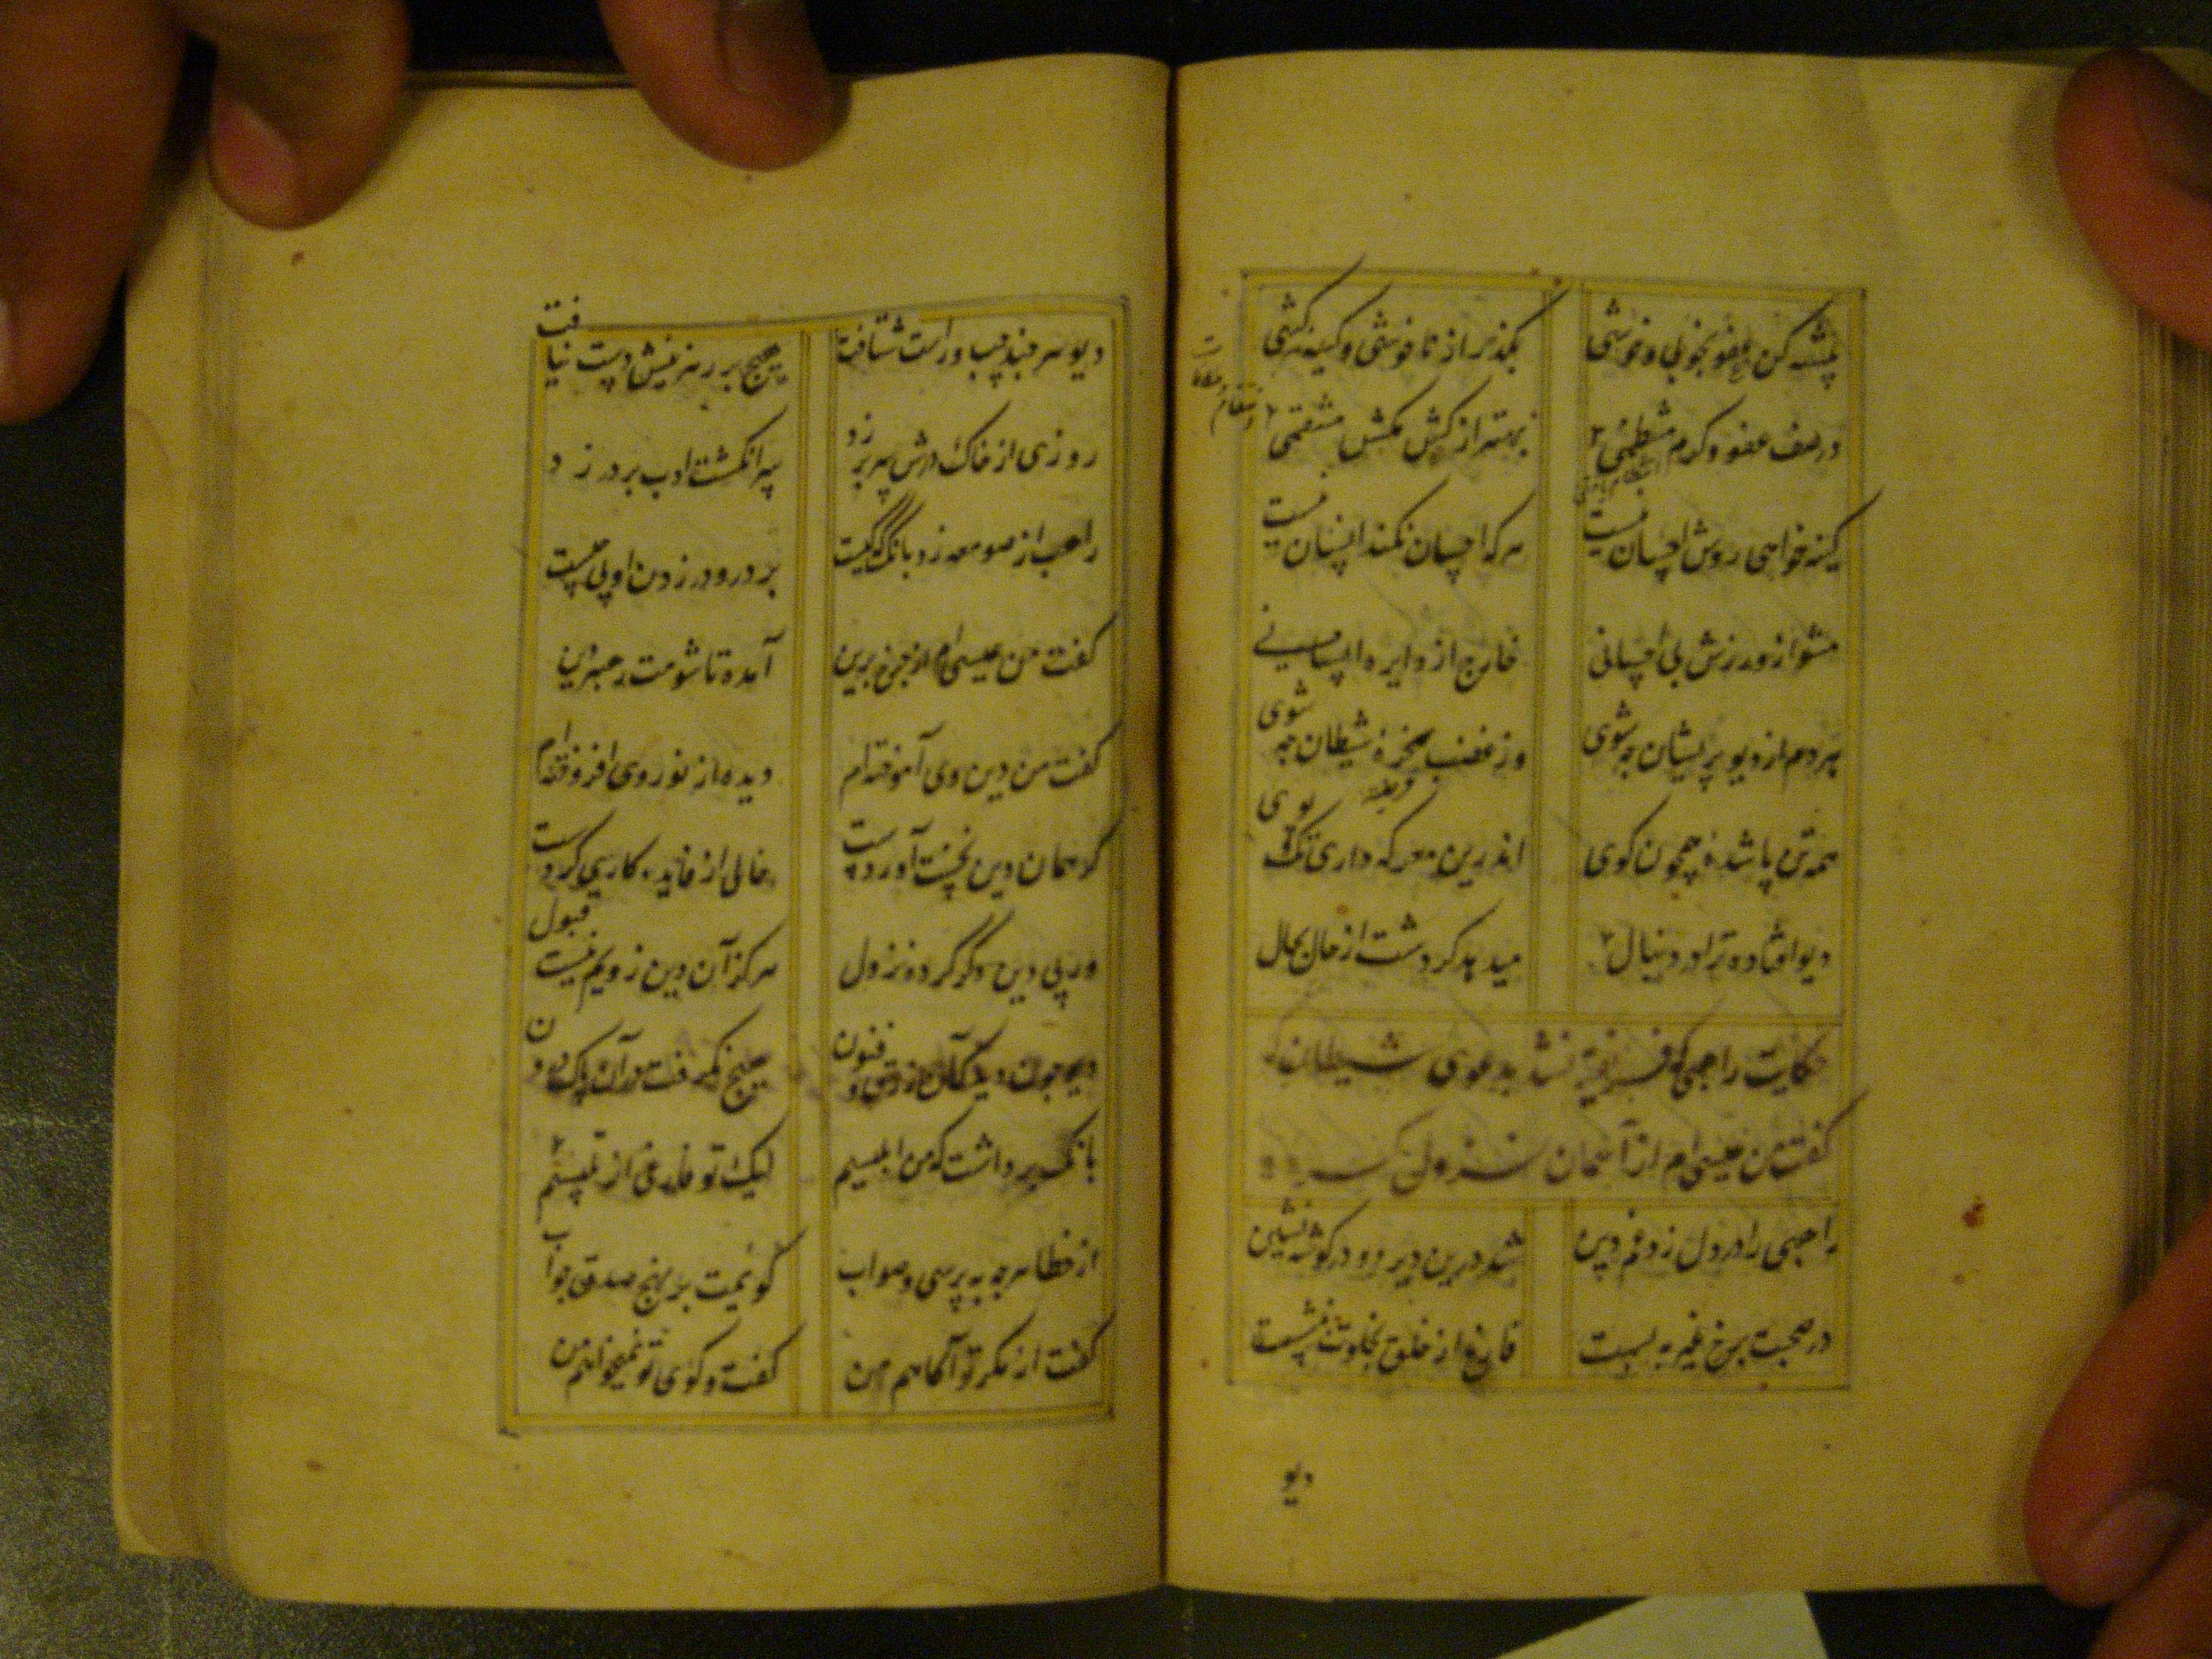 پیشه کن عفو بخوبی و خوشی بگذر از ناخوشی و کینه کشی
در صف عفو و کرم منتظمی بهتر از کش مکش منتقمی
انتقام مکافات
کینه خواهی روش احسان نیست هر که احسان نکند انسان نیست
مشو از ورزش بی احسانی خارج از دایره انسانی
هر دم از دیو پریشان چه شوی وز غضب سخره شیطان چه شوی
همه تن پا شده چون کوی اندرین معرکه داری تک و پوی
دیو افتاده ترا در دنبال میدهد گردشت از حال بحال
حکایت راهبی که فریفته نشد بدعوی شیطان که
گفت من عیسی ام از آسمان نزول
راهبی را در دل زد غم دین شد درین دیر دو در گوشه نشین
در صحبت برخ غیر به بست فارغ از خلق بخلوت بنشست
دیو
دیو هر چند چپ و راست شتافت هیچ بر رهزنیش دست نیافت
روزی از خاک درش سر بر زد سر انگشت ادب بر در زد
راهب از صومعه زد بانگ که کیست بر در و در زدن او پی چیست
گفت من عیسی ام از چرخ برین آمده تا شومت رهبر دین
گفت من دین وی آموخته ام دیده از نور وی افروخته ام
گر همان دین نخست آوردست خالی از فایده کاری کردست
ور پی دین دگر کرده نزول هرگز آن دین ز ویم نیست قبول
دیو چون دید کان زرق و فنون هیچ نگرفت در آن پاک درون
بانگ برداشت که من ابلیسم لیک از تو فارغ از تلبیسم
از خطا هر چه بپرسی و صواب گویمت بر نهج صدق جواب
گفت از مکر تو آگاهم من گفت و گوی تو نمیخواهم من